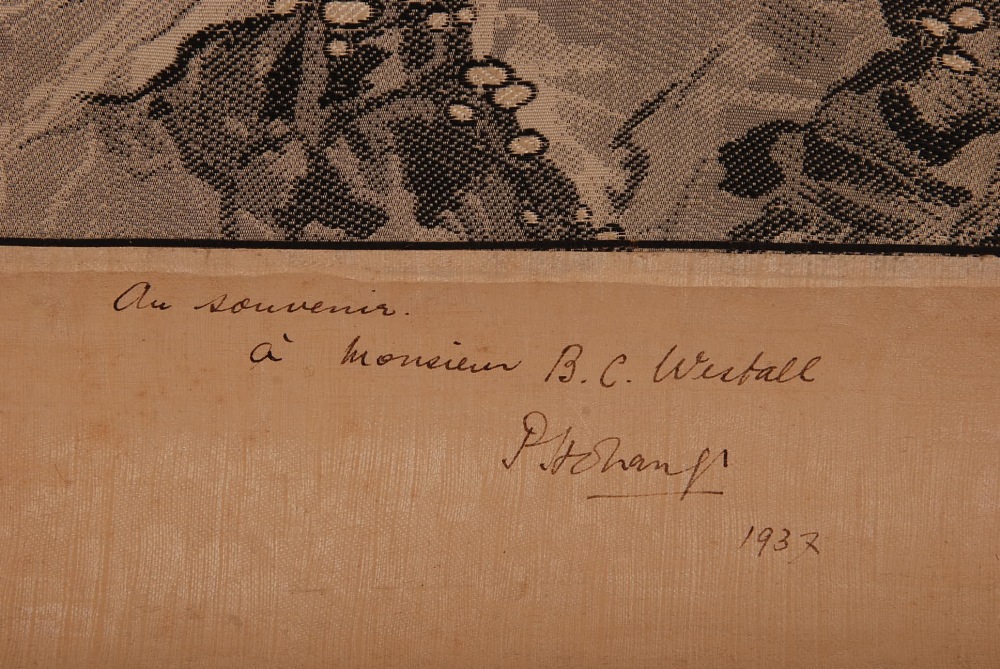 Au souvenir.
à Monsieur B. C. Westall
P. H. Chang
1937